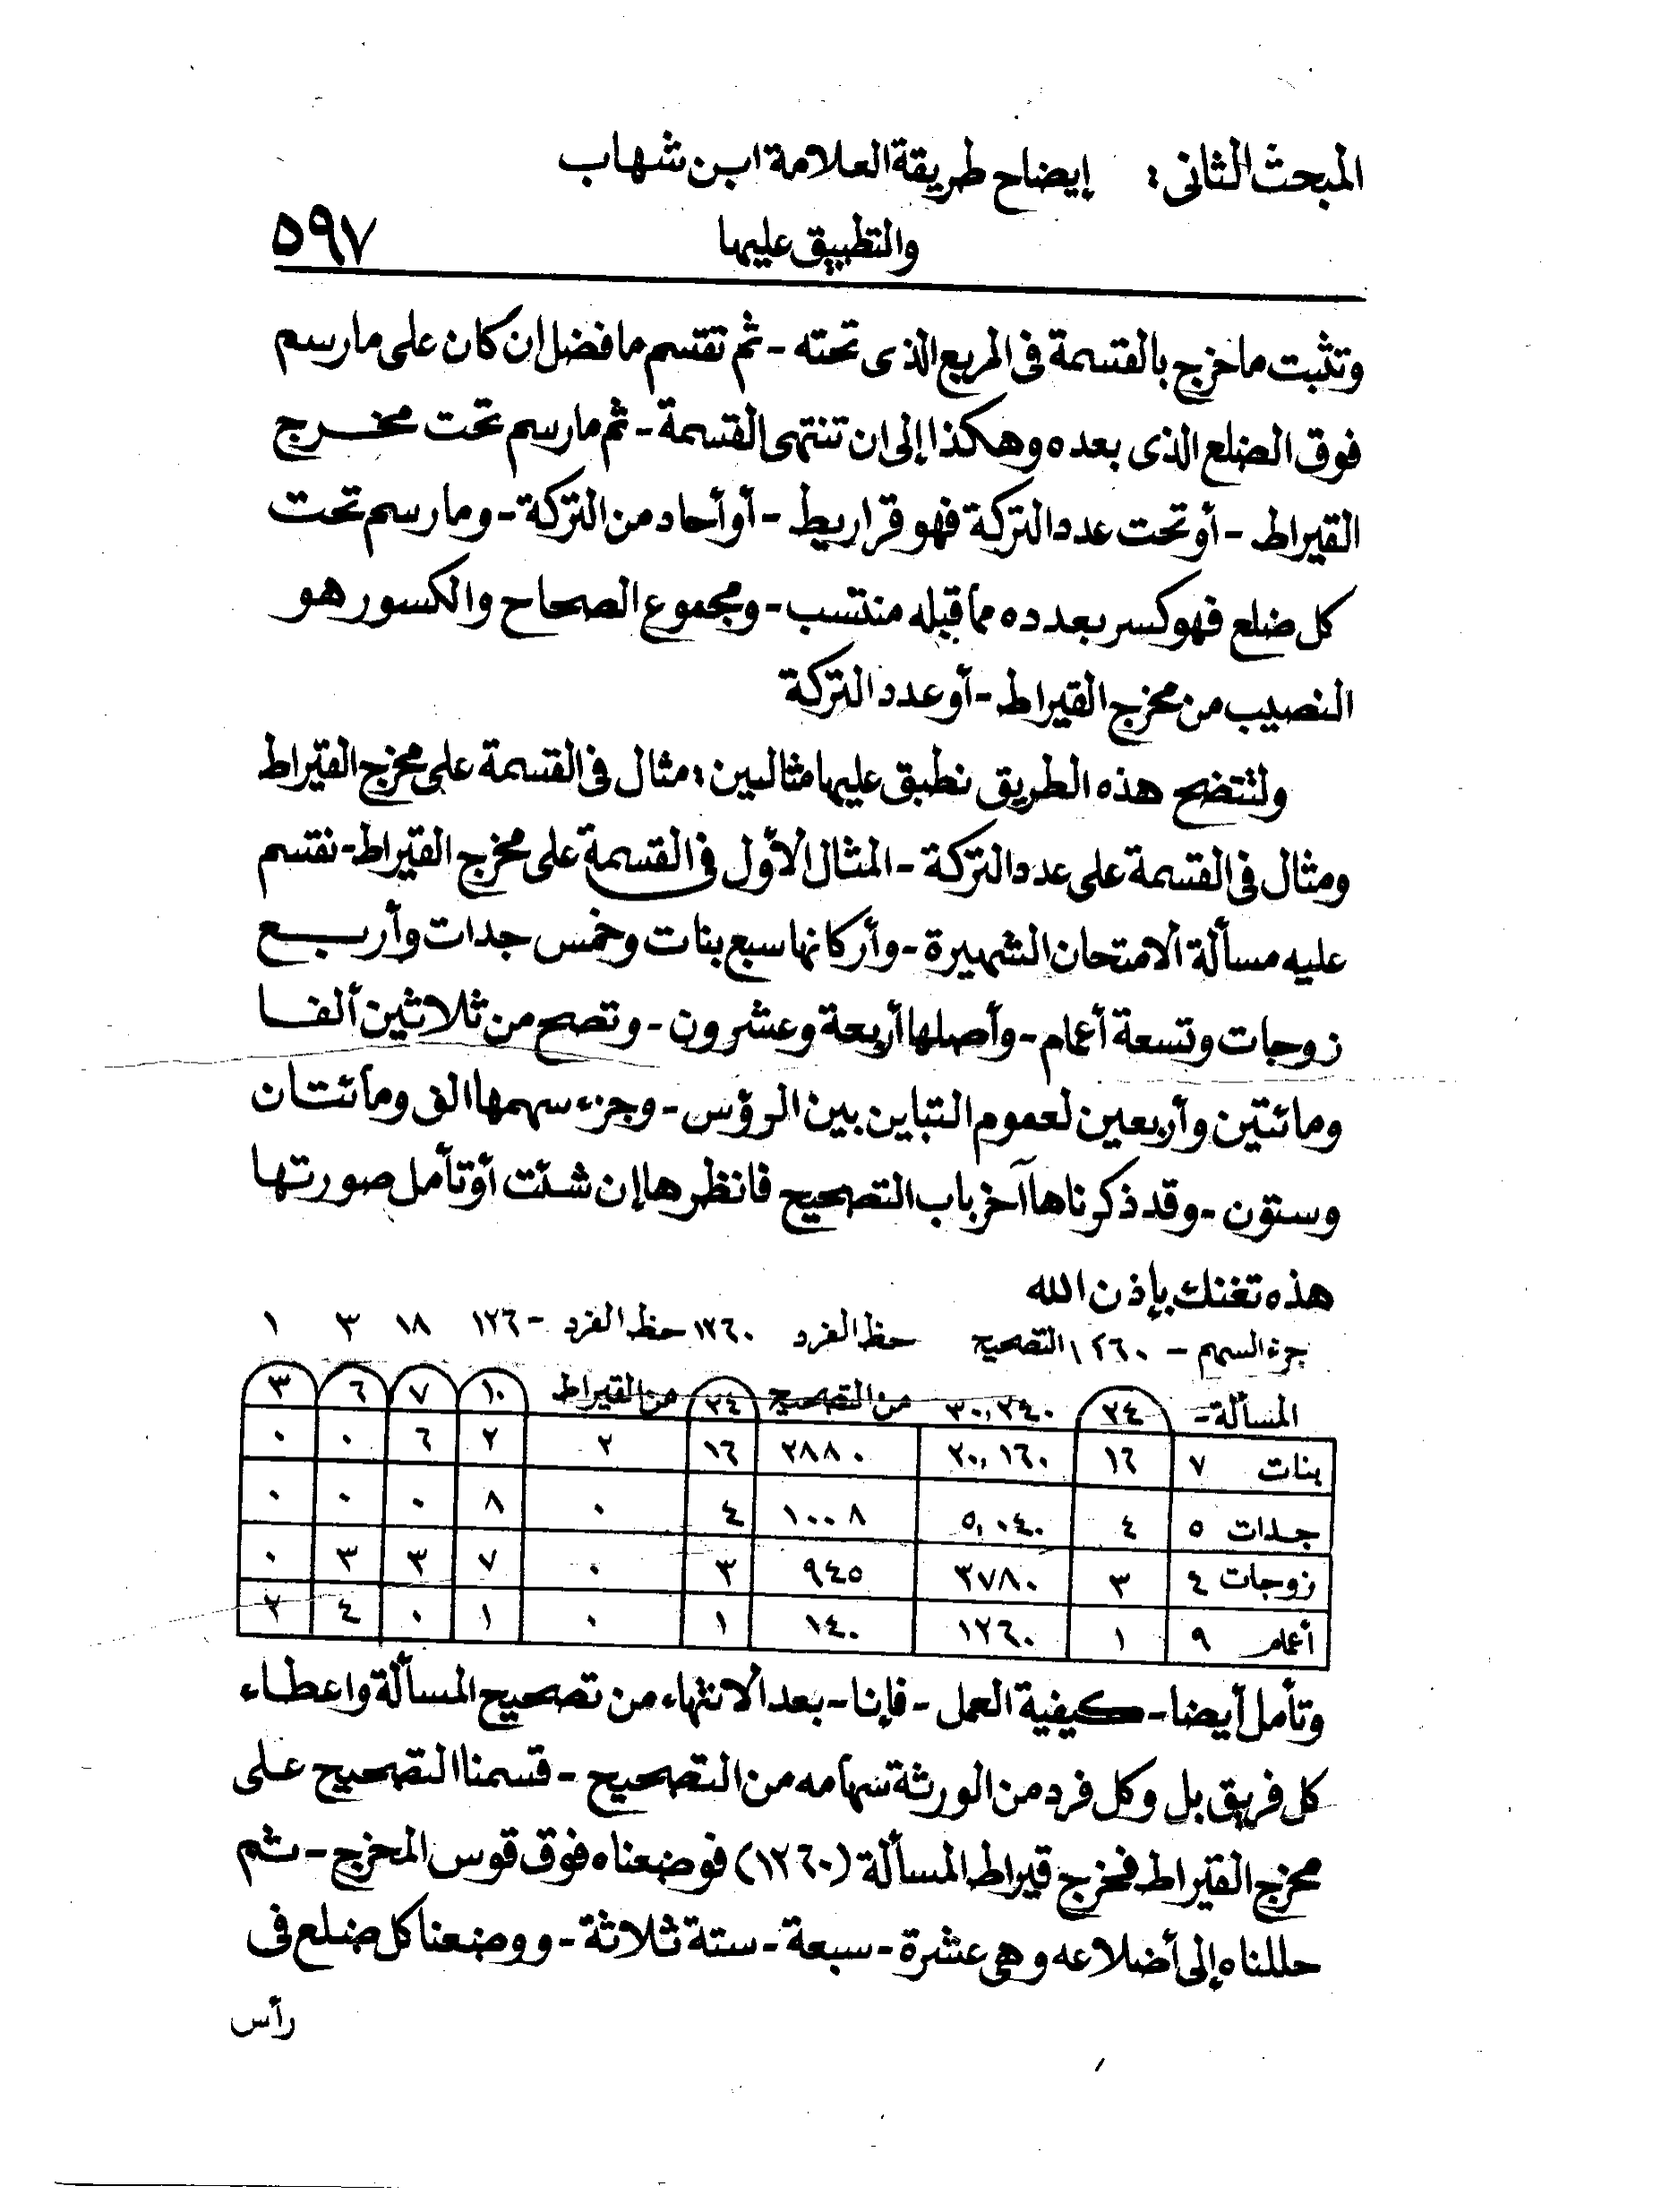 المبحث الثانى : إيضاح طريقة العلامة ابن شهاب
والتطبيق عليها ٥٩٧
وتثبت ما خرج بالقسمة فى المربع الذى تحته - ثم تقسم ما فضل ان كان على ما رسم
فوق الضلع الذى بعده وهكذا إلى ان تنتهى القسمة - ثم ما رسم تحت مخرج
القيراط - أو تحت عدد التركة فهو قراريط - أو أحاد من التركة - وما رسم تحت
كل ضلع فهو كسر بعدده مما قبله منتسب - ومجموع الصحاح والكسور هو
النصيب من مخرج القيراط - أو عدد التركة
ولتتضح هذه الطريق نطبق عليها مثالين : مثال فى القسمة على مخرج القيراط
ومثال فى القسمة على عدد التركة - المثال الأول فى القسمة على مخرج القيراط - نقسم
عليه مسألة الامتحان الشهيرة - وأركانها سبع بنات وخمس جدات وأربع
زوجات وتسعة أعمام - وأصلها أربعة وعشرون - وتصح من ثلاثين ألفا
ومائتين وأربعين لعموم التباين بين الرؤس - وجزء سهمها الف ومائتان
وستون - وقد ذكرناها آخر باب التصحيح فانظرها إن شئت أو تأمل صورتها
هذه تغنك بإذن الله
جزء السهم - ١٢٦٠ التصحيح حظ الفرد ١٢٦٠ حظ الفرد - ١٢٦ ١٨ ٣ ١
المسألة - ٢٤ ٣٠,٢٤٠ من التصحيح ٢٤ من القيراط ١٠ ٧ ٦ ٣
بنات ٧ ١٦ ٢٠,١٦٠ ٢٨٨٠ ١٦ ٢ ٢ ٦ ٠ ٠
جدات ٥ ٤ ٥,٠٤٠ ١٠٠٨ ٤ ٠ ٨ ٠ ٠ ٠
زوجات ٤ ٣ ٣٧٨٠ ٩٤٥ ٣ ٠ ٧ ٣ ٣ ٠
أعمام ٩ ١ ١٢٦٠ ١٤٠ ١ ٠ ١ ٠ ٤ ٢
وتأمل أيضا - كيفية العمل - فإنا - بعد الانتهاء من تصحيح المسألة واعطاء
كل فريق بل وكل فرد من الورثة سهامه من التصحيح - قسمنا التصحيح على
مخرج القيراط فخرج قيراط المسألة (١٢٦٠) فوضعناه فوق قوس المخرج - ثم
حللناه إلى أضلاعه وهى عشرة - سبعة - ستة ثلاثة - ووضعنا كل ضلع فى
رأس